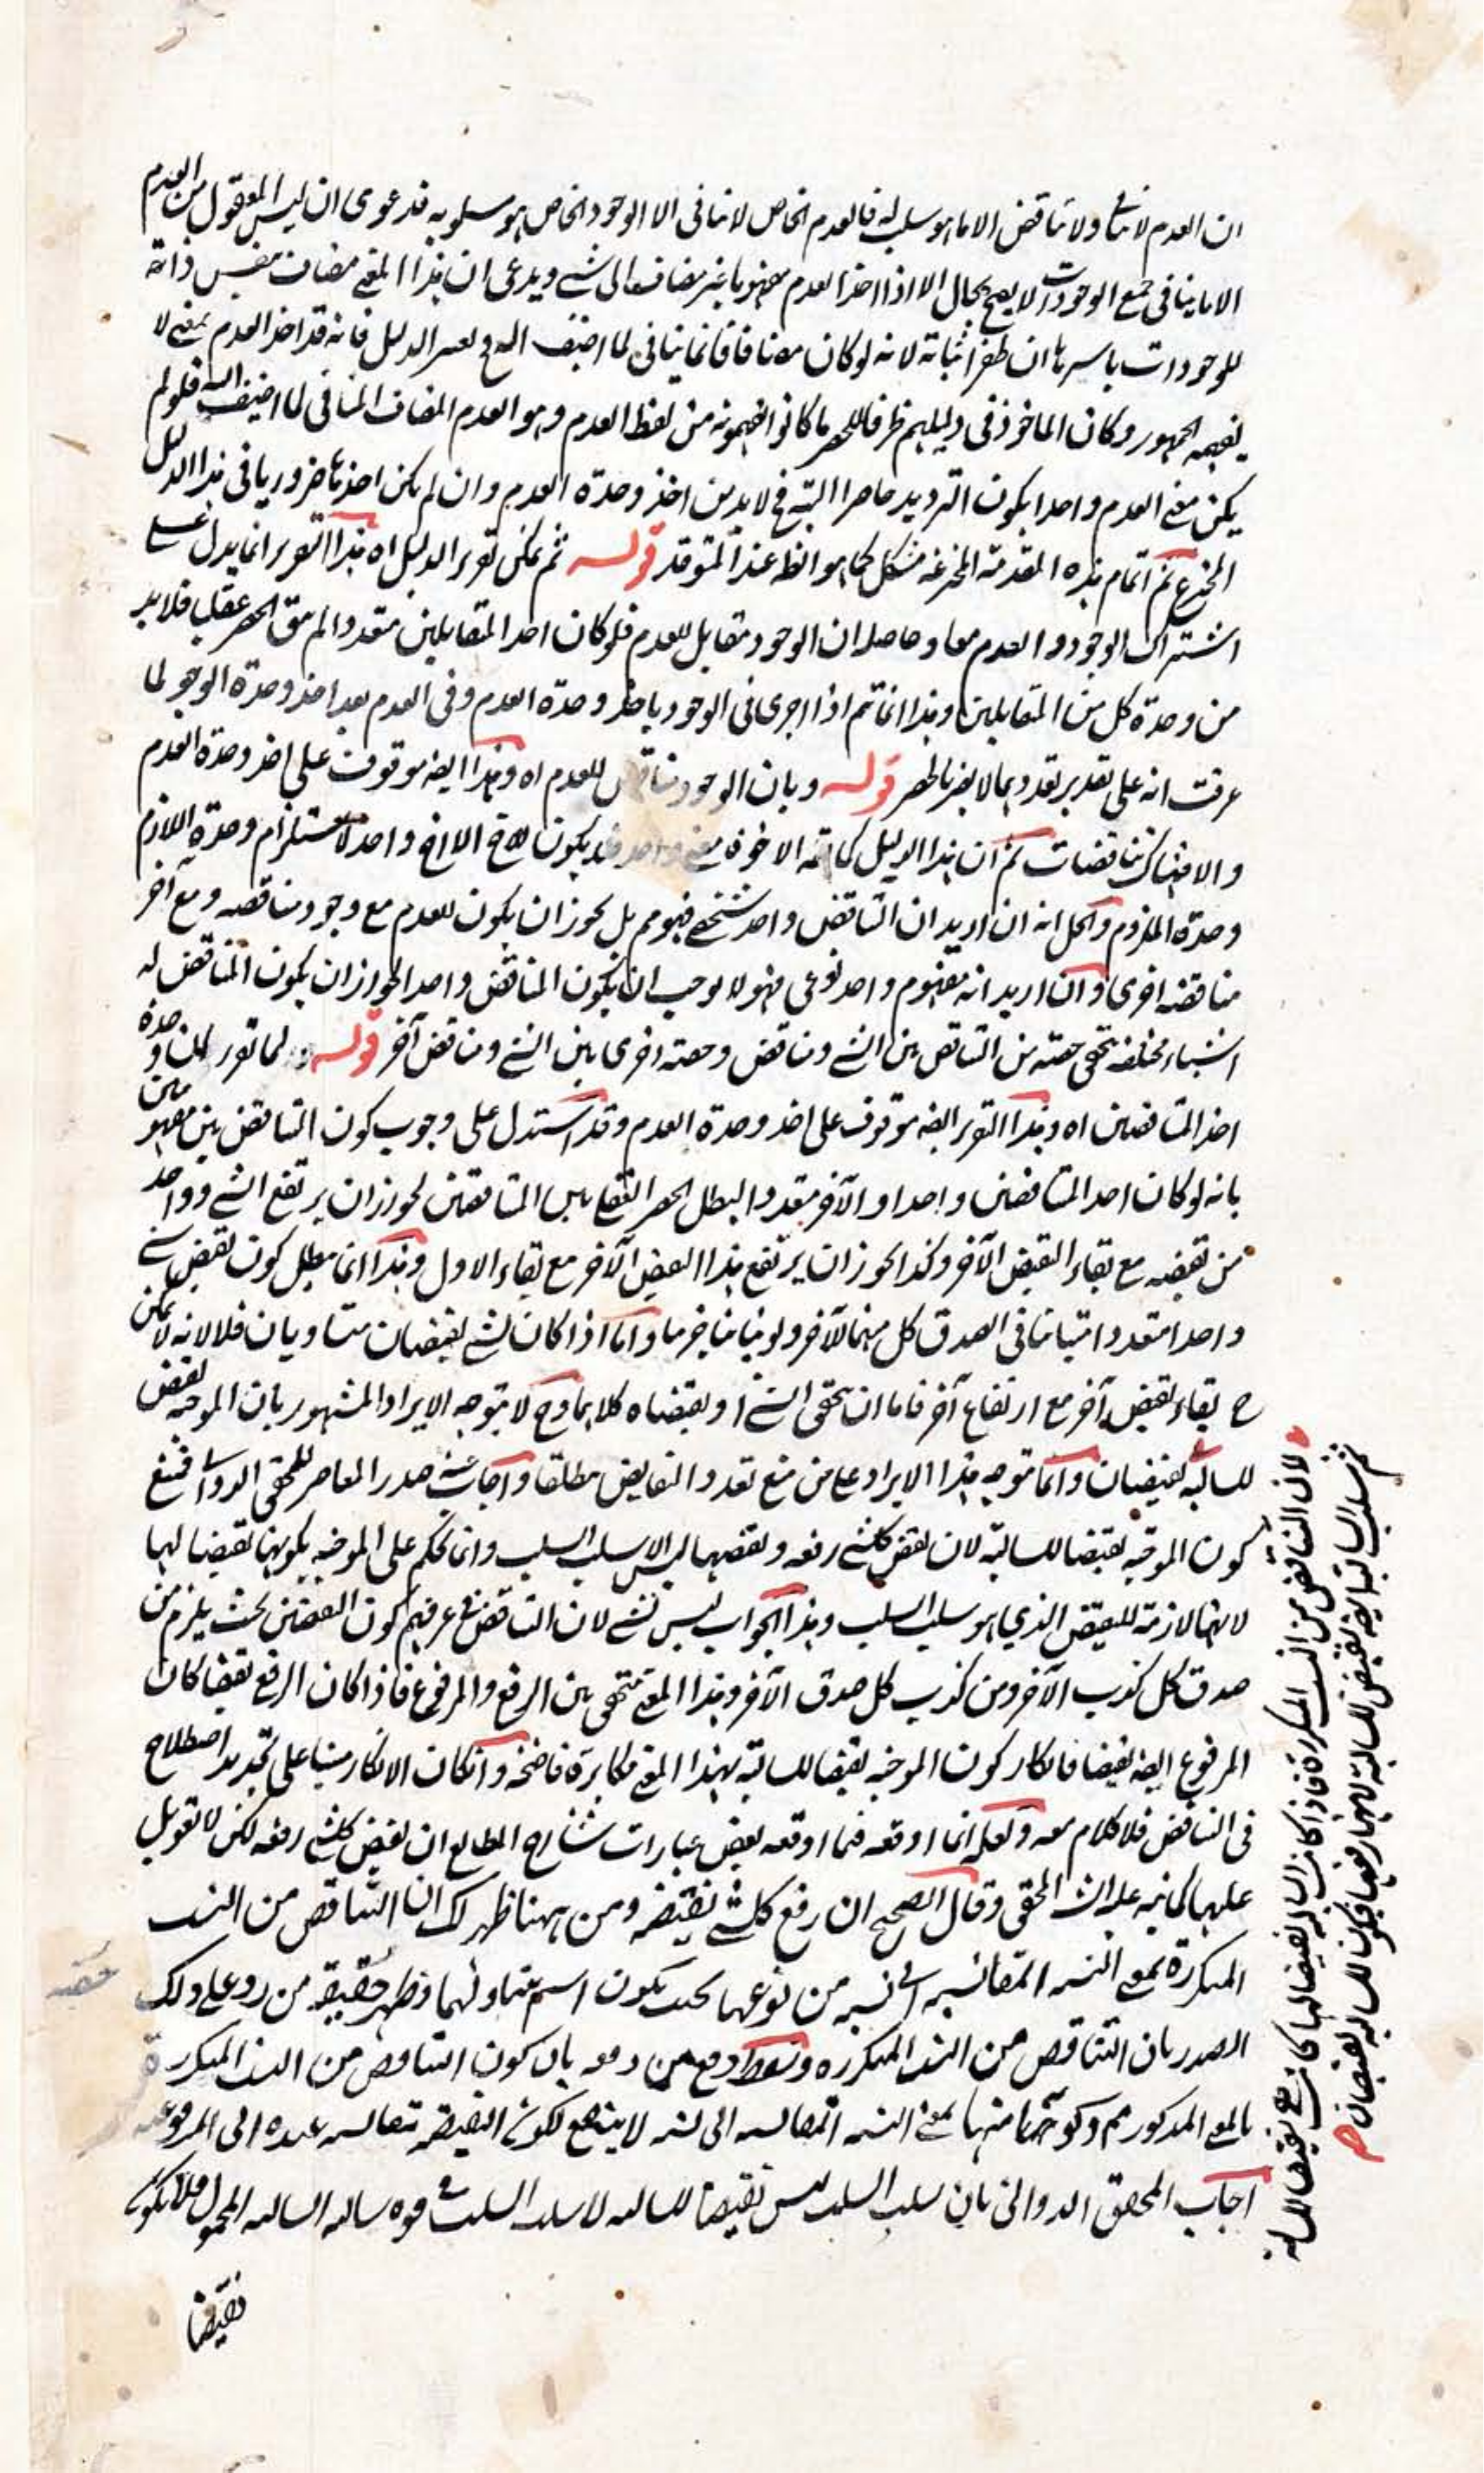 ان العدم لا ينافى ولا يناقض الا ما هو سلب له فالعدم الخاص لا ينافى الا الوجود الخاص هو مسلوبه فدعوى ان ليس المعقول من العدم
الا ما ينافى جميع الوجودات لا يصح بحال الا اذا اخذ العدم مفهوما غير مضاف الى شئ ويدعى ان هذا المعنى مضاف بنفس ذاته
للوجودات باسرها ان ظفر اثباته لانه لو كان مضافا فانما ينافى لما اضيف اليه الدليل فانه قد اخذ العدم بمعنى لا
يفهمه الجمهور وكان الماخوذ فى دليلهم طرفا للحصر ما كانوا يفهمونه من لفظ العدم وهو العدم المضاف المنافى لما اضيف اليه فلو لم
يكن معنى العدم واحدا يكون الترديد حاصرا البتة فح لا بد من اخذ وحدة العدم وان لم يكن اخذها ضروريا فى هذا الدليل
المخترع ثم اتمام هذه المقدمة المخترعة مشكل كما هو الظ عند المتوقد قوله ثم يمكن تقرير الدليل اه هذا التقرير انما يدل على
اشتراك الوجود والعدم معا وحاصله ان الوجود مقابل للعدم فلو كان احد المتقابلين متعددا لم يبق الحصر عقليا فلا بد
من وحدة كل من المتقابلين وهذا انما تم اذا اجرى فى الوجود باخذ وحدة العدم وفى العدم بعد اخذ وحدة الوجود لما
عرفت انه على تقدير تعددهما لا يضر بالحصر قوله وبان الوجود مناقض للعدم اه وهذا ايضا موقوف على اخذ وحدة العدم
والا فهناك تناقضات ثم ان هذا الدليل كما تم الا خوه معنى واحد يكون الا واحد لاستلزام وحدة اللازم
وحدة الملزوم والحل انه ان اريد ان التناقض واحد شخصى فهو مم بل يجوز ان يكون للعدم مع وجود مناقضه ومع آخر
مناقضه اخرى وان اريد انه مفهوم واحد نوعى فهو لا يوجب ان يكون المناقض واحدا لجواز ان يكون المناقض له
اشياء مختلفة يتحقق حصة من التناقض بين الشئ ومناقض وحصة اخرى بين الشئ ومناقض آخر قوله ولما تقرر وحدة
احد المتناقضين اه وهذا التقرير ايضا موقوف على اخذ وحدة العدم وقد استدل على وجوب كون التناقض بين مفهومين
بانه لو كان احد المتناقضين واحدا والآخر متعددا لبطل الحصر العقلى بين المتناقضين لجواز ان يرتفع الشئ وواحد
من نقيضه مع بقاء النقيض الآخر وكذا يجوز ان يرتفع هذا النقيض الآخر مع بقاء الاول وهذا انما يبطل كون نقيض شئ
واحد متعددا متباينا فى الصدق كل منهما للآخر ولو تباينا جزئيا واما اذا كان لشئ نقيضان متساويان فلا لانه لا يمكن
ح بقاء نقيض آخر مع ارتفاع آخر فاما ان يتحقق الشئ او نقيضاه كلاهما وح لا يتوجه الايراد المشهور بان الموجبة نقيض
للسالبة نقيضان وانما توجه هذا الايراد على من منع تعدد النقايض مطلقا واجاب عنه صدر المعاصر للمحقق الدوانى فمنع
كون الموجبة نقيضا للسالبة لان نقيض كل شئ رفعه ونقيضها ليس الا سلب السلب وانما يحكم على الموجبة بكونها نقيضا لها
لانها لازمة للنقيض الذى هو سلب السلب وهذا الجواب ليس بشئ لان التناقض فى عرفهم كون القضيتين بحيث يلزم من
صدق كل كذب الآخر ومن كذب كل صدق الآخر وهذا المعنى يتحقق بين الرفع والمرفوع فاذا كان الرفع نقيضا كان
المرفوع ايضا نقيضا فانكار كون الموجبة نقيضا للسالبة بهذا المعنى مكابرة فاضحة وان كان الانكار مبنيا على تجديد اصطلاح
فى التناقض فلا كلام معه ولعله انما اوقعه فيما اوقعه بعض عبارات شارح المطالع ان نقيض كل شئ رفعه لكن لا تعويل
عليها كما نبه عليه الش المحقق وقال الصحيح ان رفع كل شئ نقيضه ومن ههنا ظهر لك ان التناقض من النسب
المتكررة بمعنى النسبة المقائسة الى نسبة من نوعها بحيث يكون اسم يتناولهما وظهر حقيقة من رد على ذلك
الصدر بان التناقض من النسب المتكررة وسقط دفع من دفعه بان كون التناقض من النسب المتكررة
بالمعنى المذكور مم وكونها منها بمعنى النسبة المقائسة الى نسبة لا ينفع لكون النقيضية تقائس عنده الى المرفوعية
اجاب المحقق الدوانى بان سلب السلب ليس نقيضا للسالبة لان سلب السلب فى قوة سالبة السالبة المحمول فلا يكون
نقيضا
لان التناقض من النسب المتكررة فاذا كانت السالبة نقيضا لها كانت هى نقيضا للسالبة
ثم سلب السالبة ايضا نقيض للسالبة لانها رفعها فيكون للسالبة نقيضان